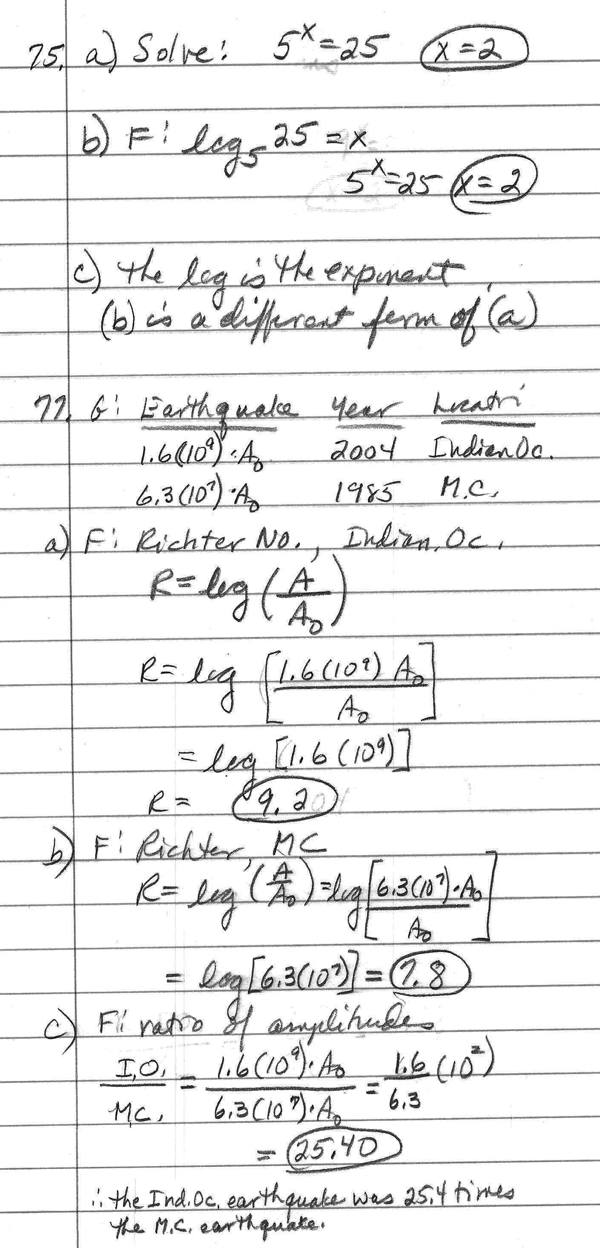 75. a) Solve: 5^x = 25 x = 2
b) F: log₅ 25 = x
5^x = 25 x = 2
c) the log is the exponent.
(b) is a different form of (a)
77. G: Earthquake Year Locatn
1.6(10⁹)·A₀ 2004 Indian Oc.
6.3(10⁷)·A₀ 1985 M.C.
a) F: Richter No., Indian. Oc.
R = log (A/A₀)
R = log [1.6(10⁹) A₀ / A₀]
= log [1.6(10⁹)]
R = 9.2
b) F: Richter, MC
R = log (A/A₀) = log [6.3(10⁷)·A₀ / A₀]
= log [6.3(10⁷)] = 7.8
c) F: ratio of amplitudes
I.O. / M.C. = 1.6(10⁹)·A₀ / 6.3(10⁷)·A₀ = 1.6/6.3 (10²)
= 25.40
∴ the Ind. Oc. earthquake was 25.4 times
the M.C. earthquake.